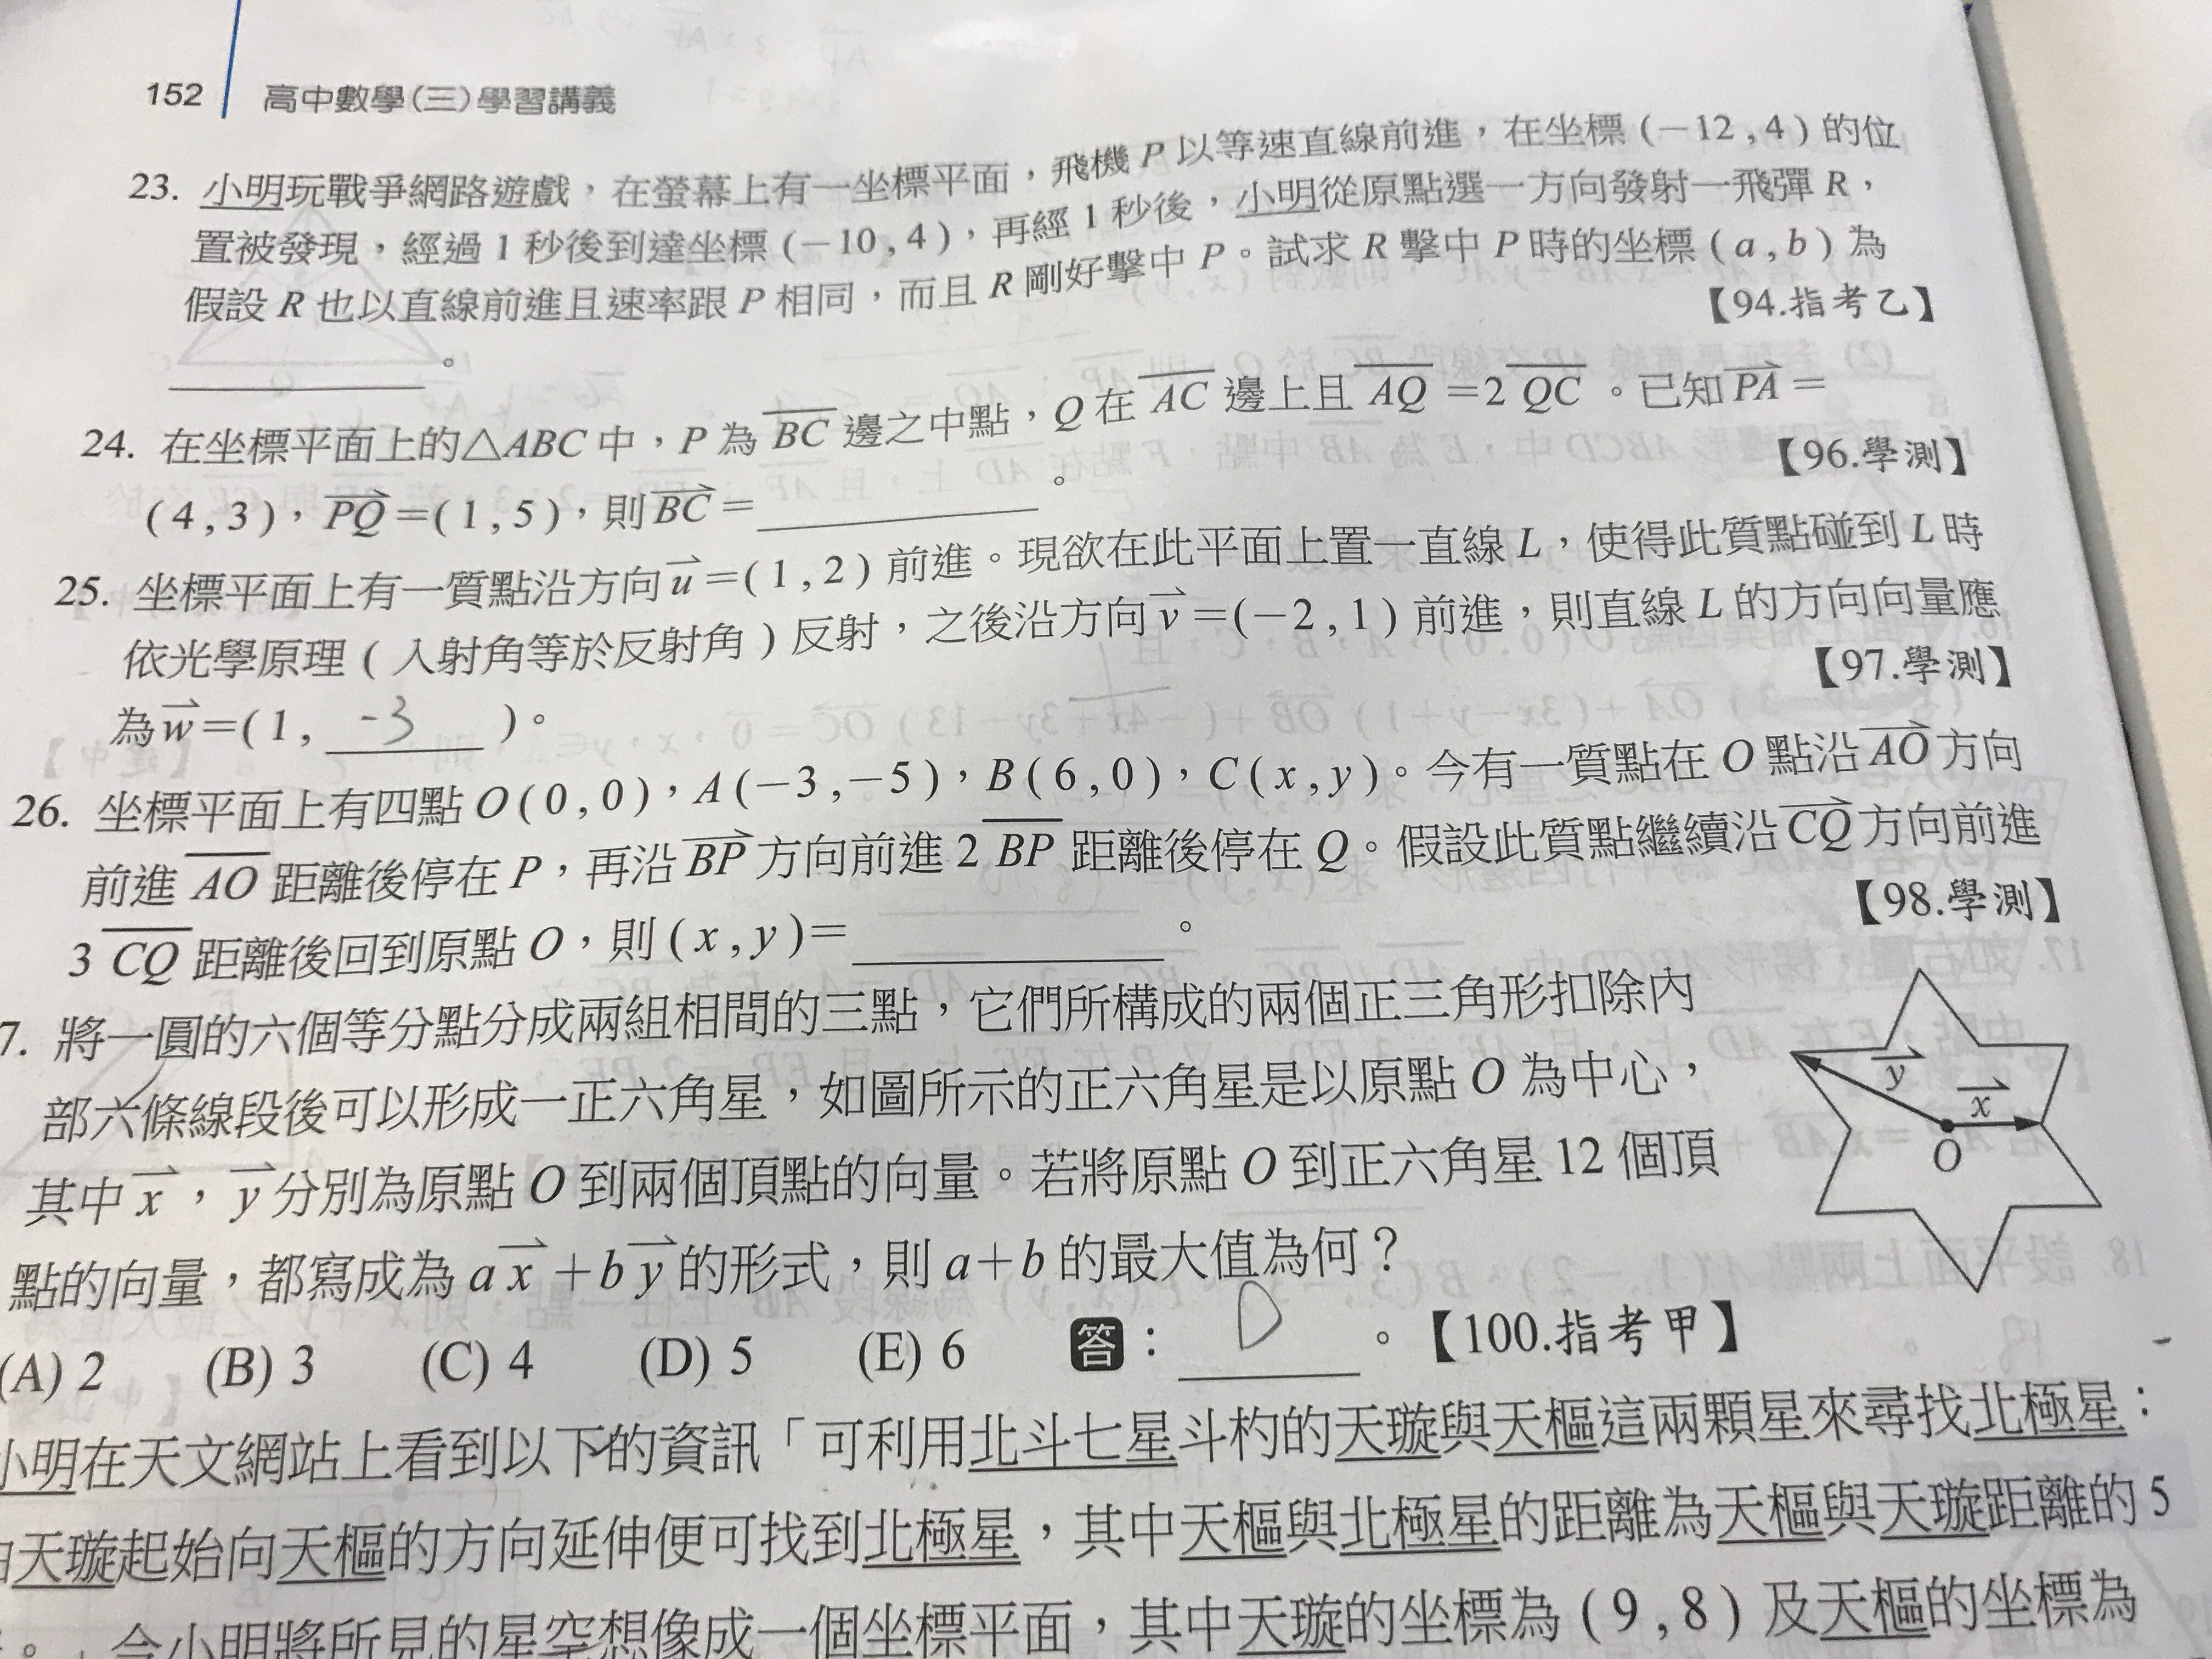 152 高中數學(三)學習講義
23. 小明玩戰爭網路遊戲，在螢幕上有一坐標平面，飛機 P 以等速直線前進，在坐標 (−12 , 4 ) 的位
置被發現，經過 1 秒後到達坐標 (−10 , 4 )，再經 1 秒後，小明從原點選一方向發射一飛彈 R，
假設 R 也以直線前進且速率跟 P 相同，而且 R 剛好擊中 P。試求 R 擊中 P 時的坐標 ( a , b ) 為
。 【94.指考乙】
24. 在坐標平面上的△ABC 中，P 為 BC 邊之中點，Q 在 AC 邊上且 AQ =2 QC 。已知 PA =
( 4 , 3 )，PQ =( 1 , 5 )，則 BC = 。 【96.學測】
25. 坐標平面上有一質點沿方向 u =( 1 , 2 ) 前進。現欲在此平面上置一直線 L，使得此質點碰到 L 時
依光學原理 ( 入射角等於反射角 ) 反射，之後沿方向 v =(−2 , 1 ) 前進，則直線 L 的方向向量應
為 w =( 1 , -3 )。 【97.學測】
26. 坐標平面上有四點 O ( 0 , 0 )，A (−3 , −5 )，B ( 6 , 0 )，C ( x , y )。今有一質點在 O 點沿 AO 方向
前進 AO 距離後停在 P，再沿 BP 方向前進 2 BP 距離後停在 Q。假設此質點繼續沿 CQ 方向前進
3 CQ 距離後回到原點 O，則 ( x , y )= 。 【98.學測】
7. 將一圓的六個等分點分成兩組相間的三點，它們所構成的兩個正三角形扣除內
部六條線段後可以形成一正六角星，如圖所示的正六角星是以原點 O 為中心，
其中 x ，y 分別為原點 O 到兩個頂點的向量。若將原點 O 到正六角星 12 個頂
點的向量，都寫成為 a x + b y 的形式，則 a + b 的最大值為何？
y
x
O
(A) 2 (B) 3 (C) 4 (D) 5 (E) 6 答： D 。【100.指考甲】
小明在天文網站上看到以下的資訊「可利用北斗七星斗杓的天璇與天樞這兩顆星來尋找北極星：
由天璇起始向天樞的方向延伸便可找到北極星，其中天樞與北極星的距離為天樞與天璇距離的 5
。」今小明將所見的星空想像成一個坐標平面，其中天璇的坐標為 ( 9 , 8 ) 及天樞的坐標為